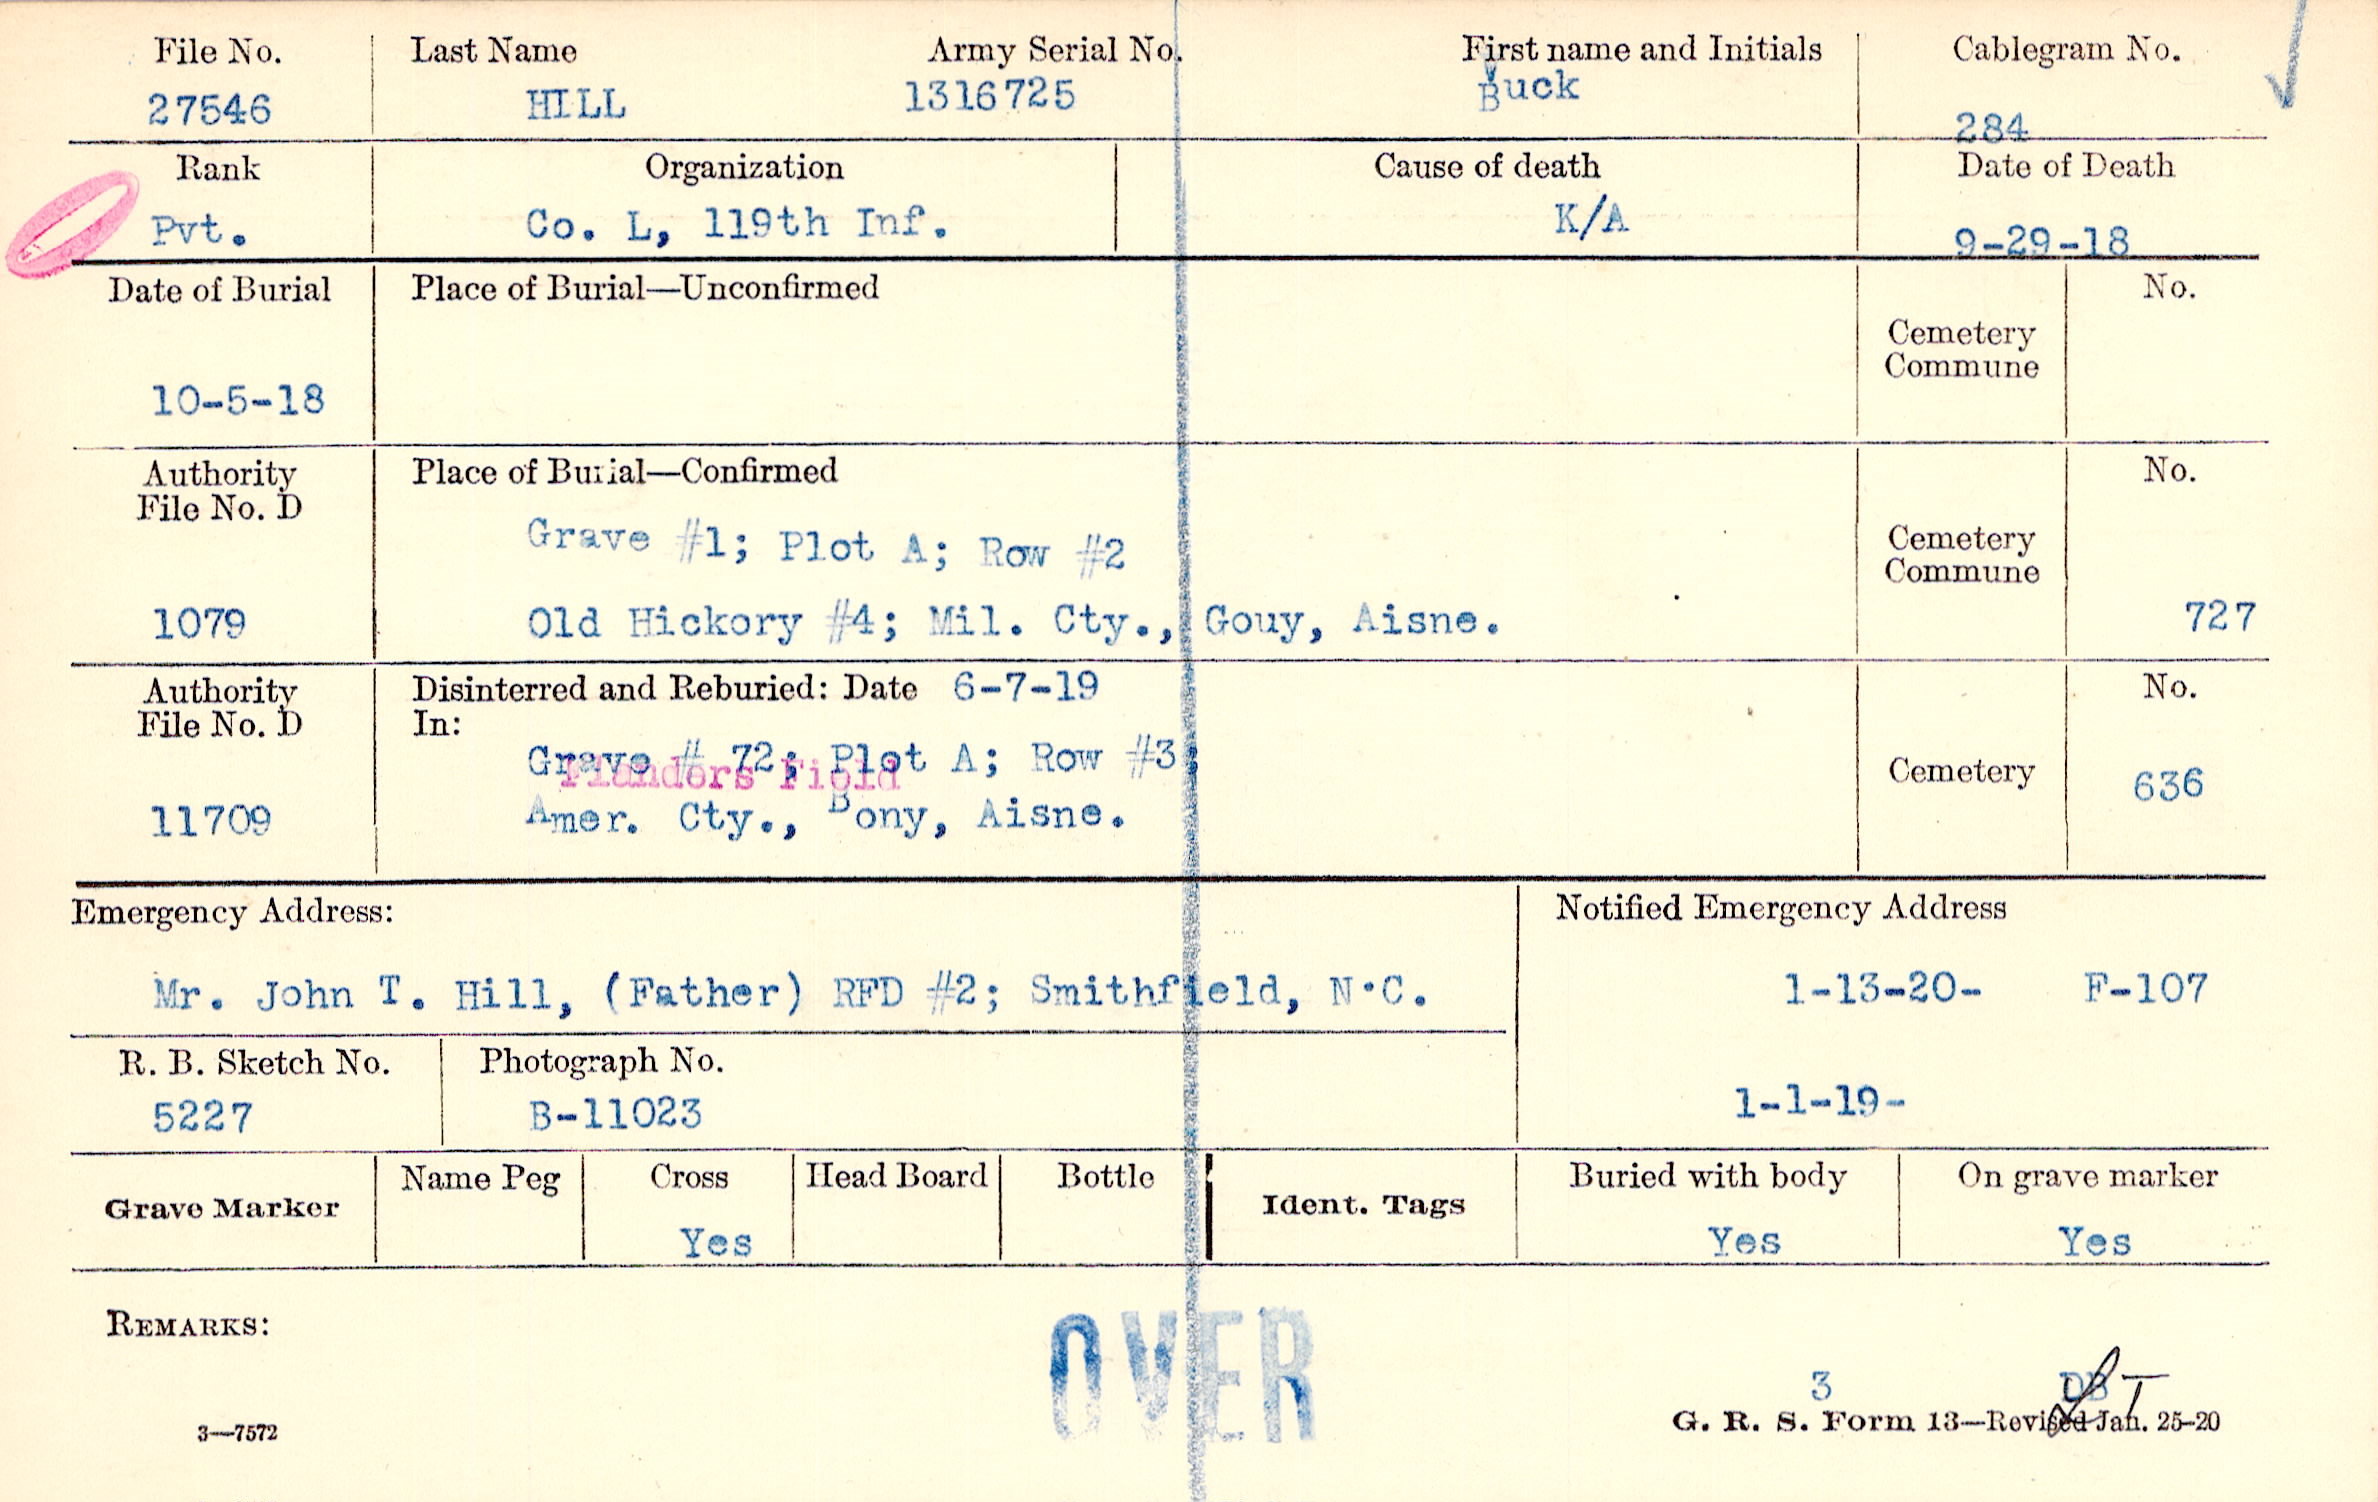 File No. Last Name Army Serial No. First name and Initials Cablegram No.
27546 HILL 1316725 Buck 284
Rank Organization Cause of death Date of Death
Pvt. Co. L, 119th Inf. K/A 9-29-18
Date of Burial Place of Burial—Unconfirmed No.
Cemetery
Commune
10-5-18
Authority Place of Burial—Confirmed No.
File No. D
Grave #1; Plot A; Row #2 Cemetery
Commune
1079 Old Hickory #4; Mil. Cty., Gouy, Aisne. 727
Authority Disinterred and Reburied: Date 6-7-19 No.
File No. D In:
Grave # 72; Plot A; Row #3;
Flanders Field Cemetery 636
11709 Amer. Cty., Bony, Aisne.
Emergency Address: Notified Emergency Address
Mr. John T. Hill, (Father) RFD #2; Smithfield, N.C. 1-13-20- F-107
R. B. Sketch No. Photograph No.
5227 B-11023 1-1-19-
Grave Marker Name Peg Cross Head Board Bottle Ident. Tags Buried with body On grave marker
Yes Yes Yes
REMARKS:
OVER
3 DB
3—7572 G. R. S. Form 13—Revised Jan. 25-20